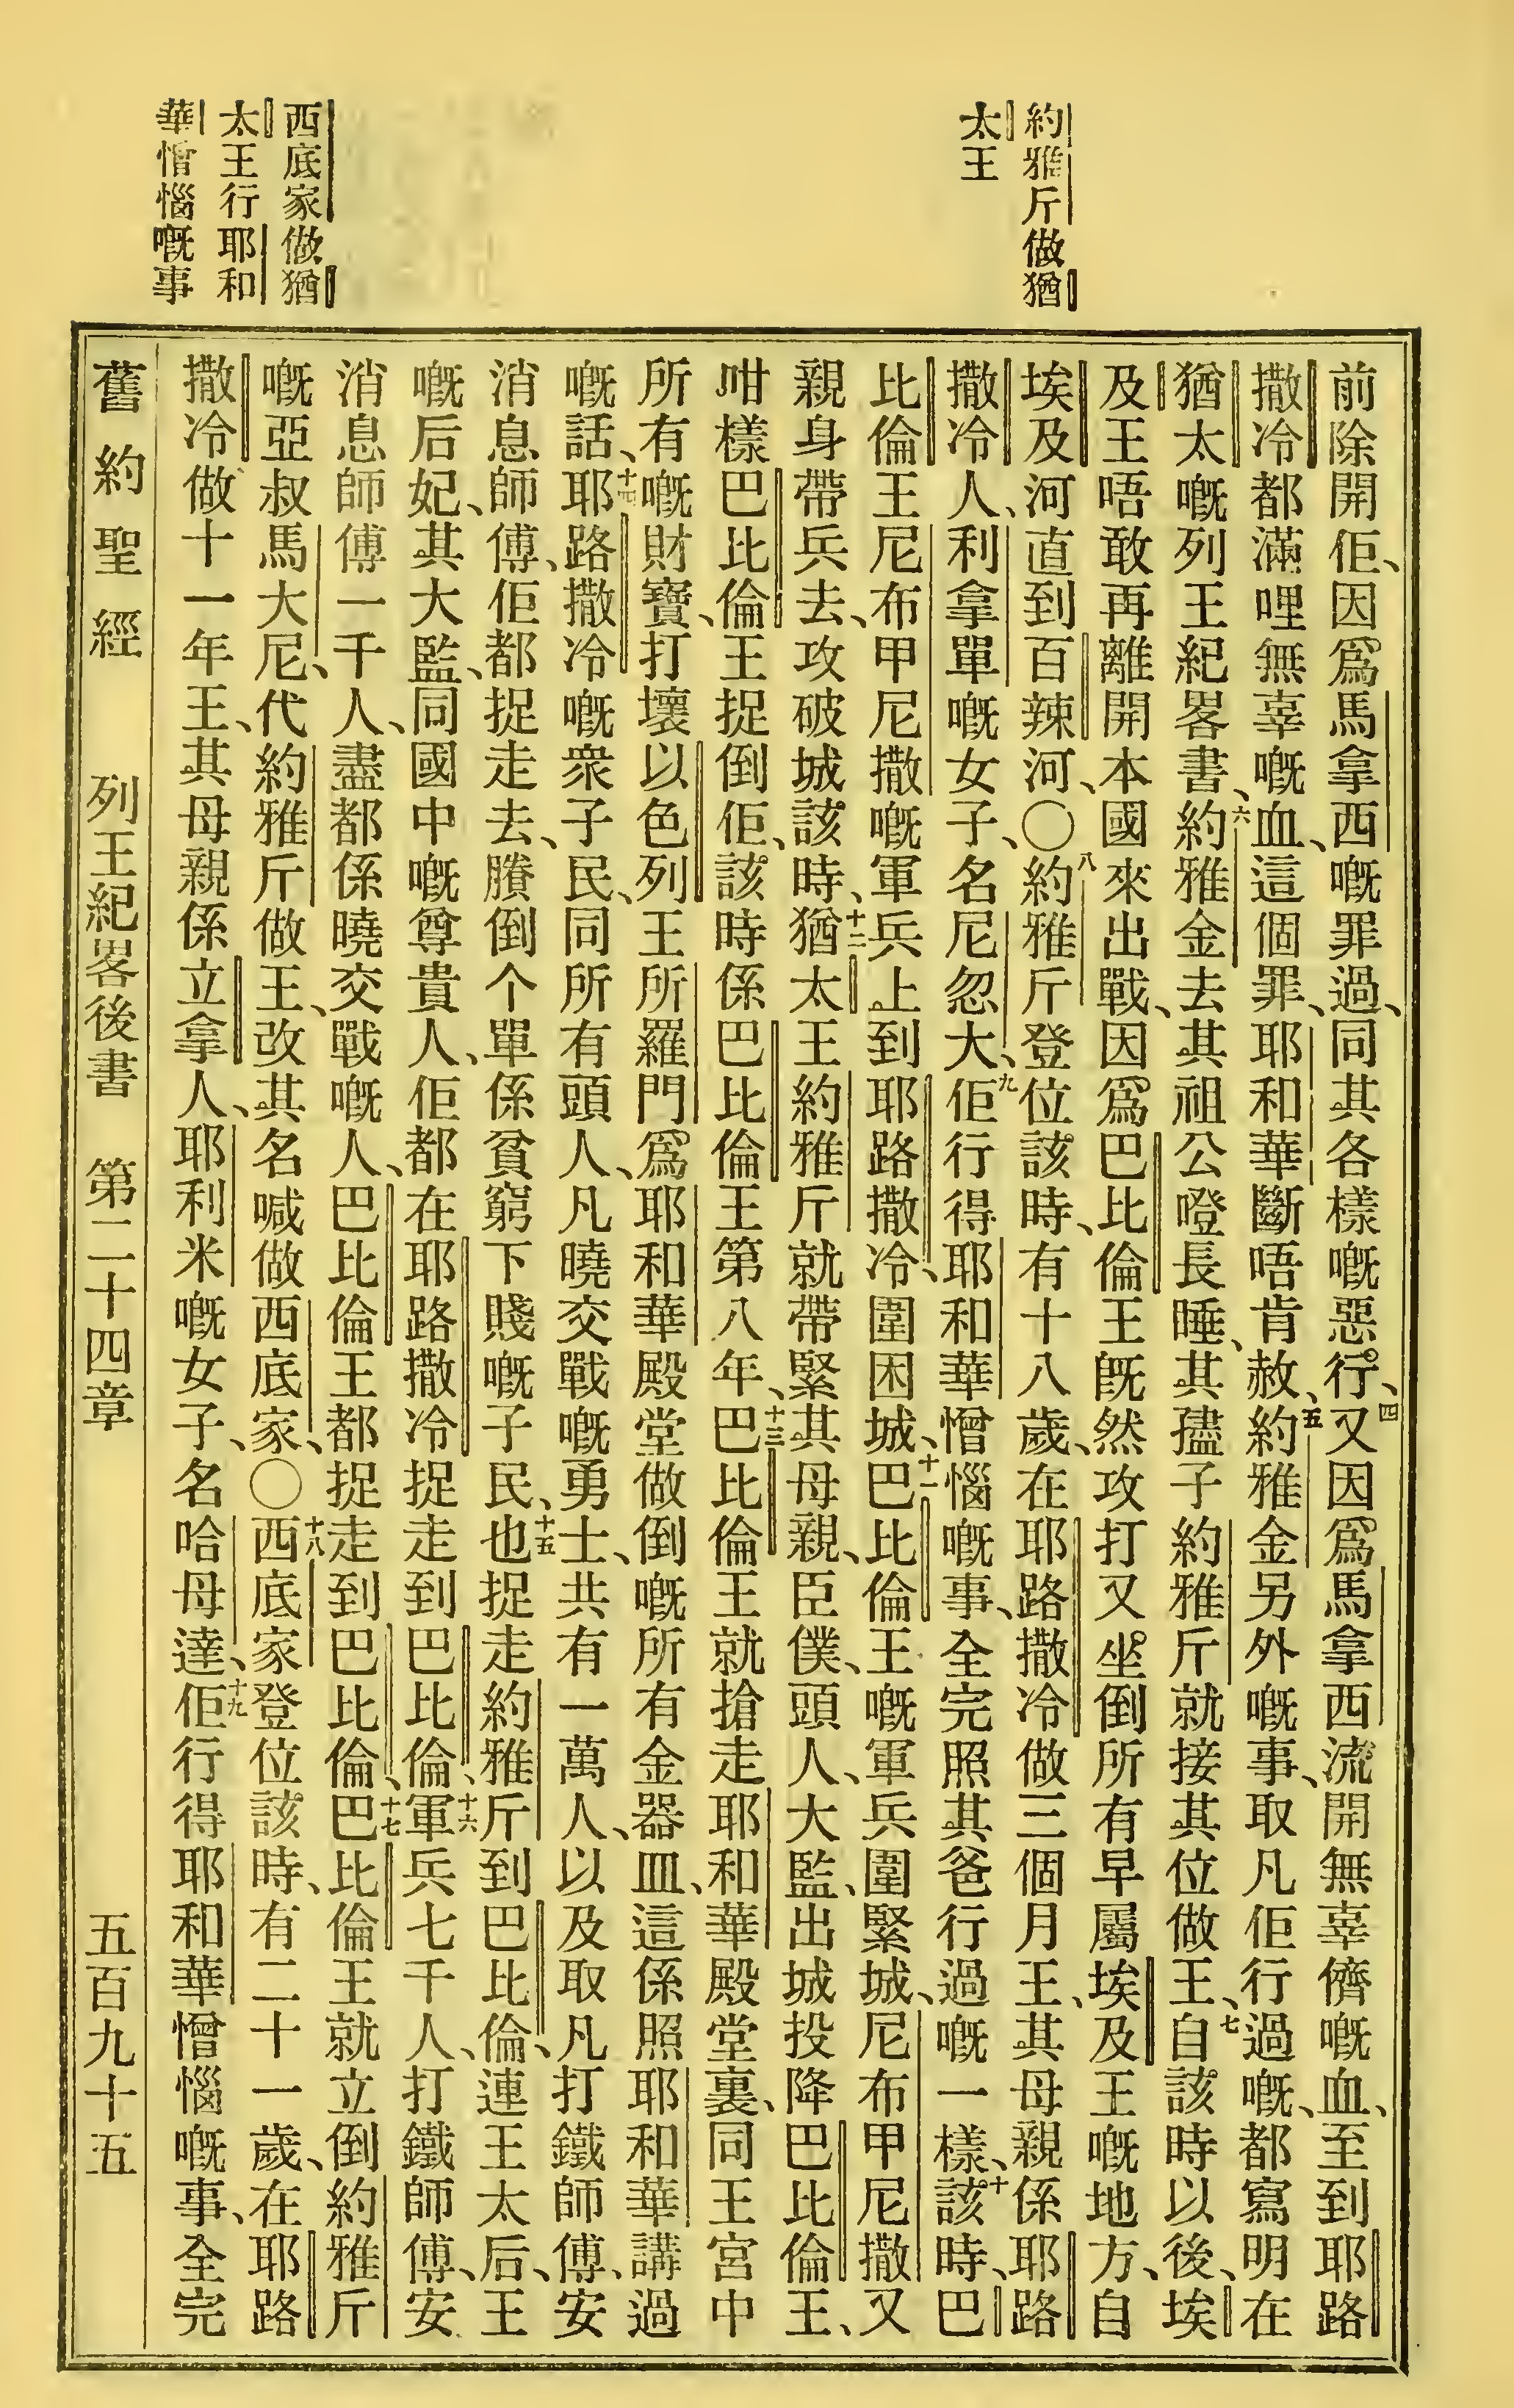 約雅斤做猶
太王
西底家做猶
太王行耶和
華憎惱嘅事
前除開佢、因爲馬拿西嘅罪過、同其各樣嘅惡行、四又因爲馬拿西流開無辜儕嘅血、至到耶路
撒冷都滿哩無辜嘅血、這個罪、耶和華斷唔肯赦、五約雅金另外嘅事、取凡佢行過嘅、都寫明在
猶太嘅列王紀畧書、六約雅金去其祖公噔長睡、其孻子約雅斤就接其位做王、七自該時以後、埃
及王唔敢再離開本國來出戰、因爲巴比倫王旣然攻打又坐倒所有早屬埃及王嘅地方、自
埃及河直到百辣河、〇八約雅斤登位該時、有十八歲、在耶路撒冷做三個月王、其母親係耶路
撒冷人、利拿單嘅女子、名尼忽大、九佢行得耶和華憎惱嘅事、全完照其爸行過嘅一樣、十該時、巴
比倫王尼布甲尼撒嘅軍兵上到耶路撒冷、圍困城、十一巴比倫王嘅軍兵圍緊城、尼布甲尼撒又
親身帶兵去、攻破城該時、十二猶太王約雅斤就帶緊其母親、臣僕、頭人、大監、出城投降巴比倫王、
咁樣巴比倫王捉倒佢、該時係巴比倫王第八年、十三巴比倫王就搶走耶和華殿堂裏、同王宮中
所有嘅財寶、打壞以色列王所羅門爲耶和華殿堂做倒嘅所有金器皿、這係照耶和華講過
嘅話、十四耶路撒冷嘅衆子民、同所有頭人、凡曉交戰嘅勇士、共有一萬人、以及取凡打鐵師傅、安
消息師傅、佢都捉走去、賸倒个單係貧窮下賤嘅子民、十五也捉走約雅斤到巴比倫、連王太后、王
嘅后妃、其大監、同國中嘅尊貴人、佢都在耶路撒冷捉走到巴比倫、十六軍兵七千人、打鐵師傅、安
消息師傅一千人、盡都係曉交戰嘅人、巴比倫王都捉走到巴比倫、十七巴比倫王就立倒約雅斤
嘅亞叔馬大尼、代約雅斤做王、改其名喊做西底家、〇十八西底家登位該時、有二十一歲、在耶路
撒冷做十一年王、其母親係立拿人、耶利米嘅女子、名哈母達、十九佢行得耶和華憎惱嘅事、全完
舊約聖經 列王紀畧後書 第二十四章 五百九十五